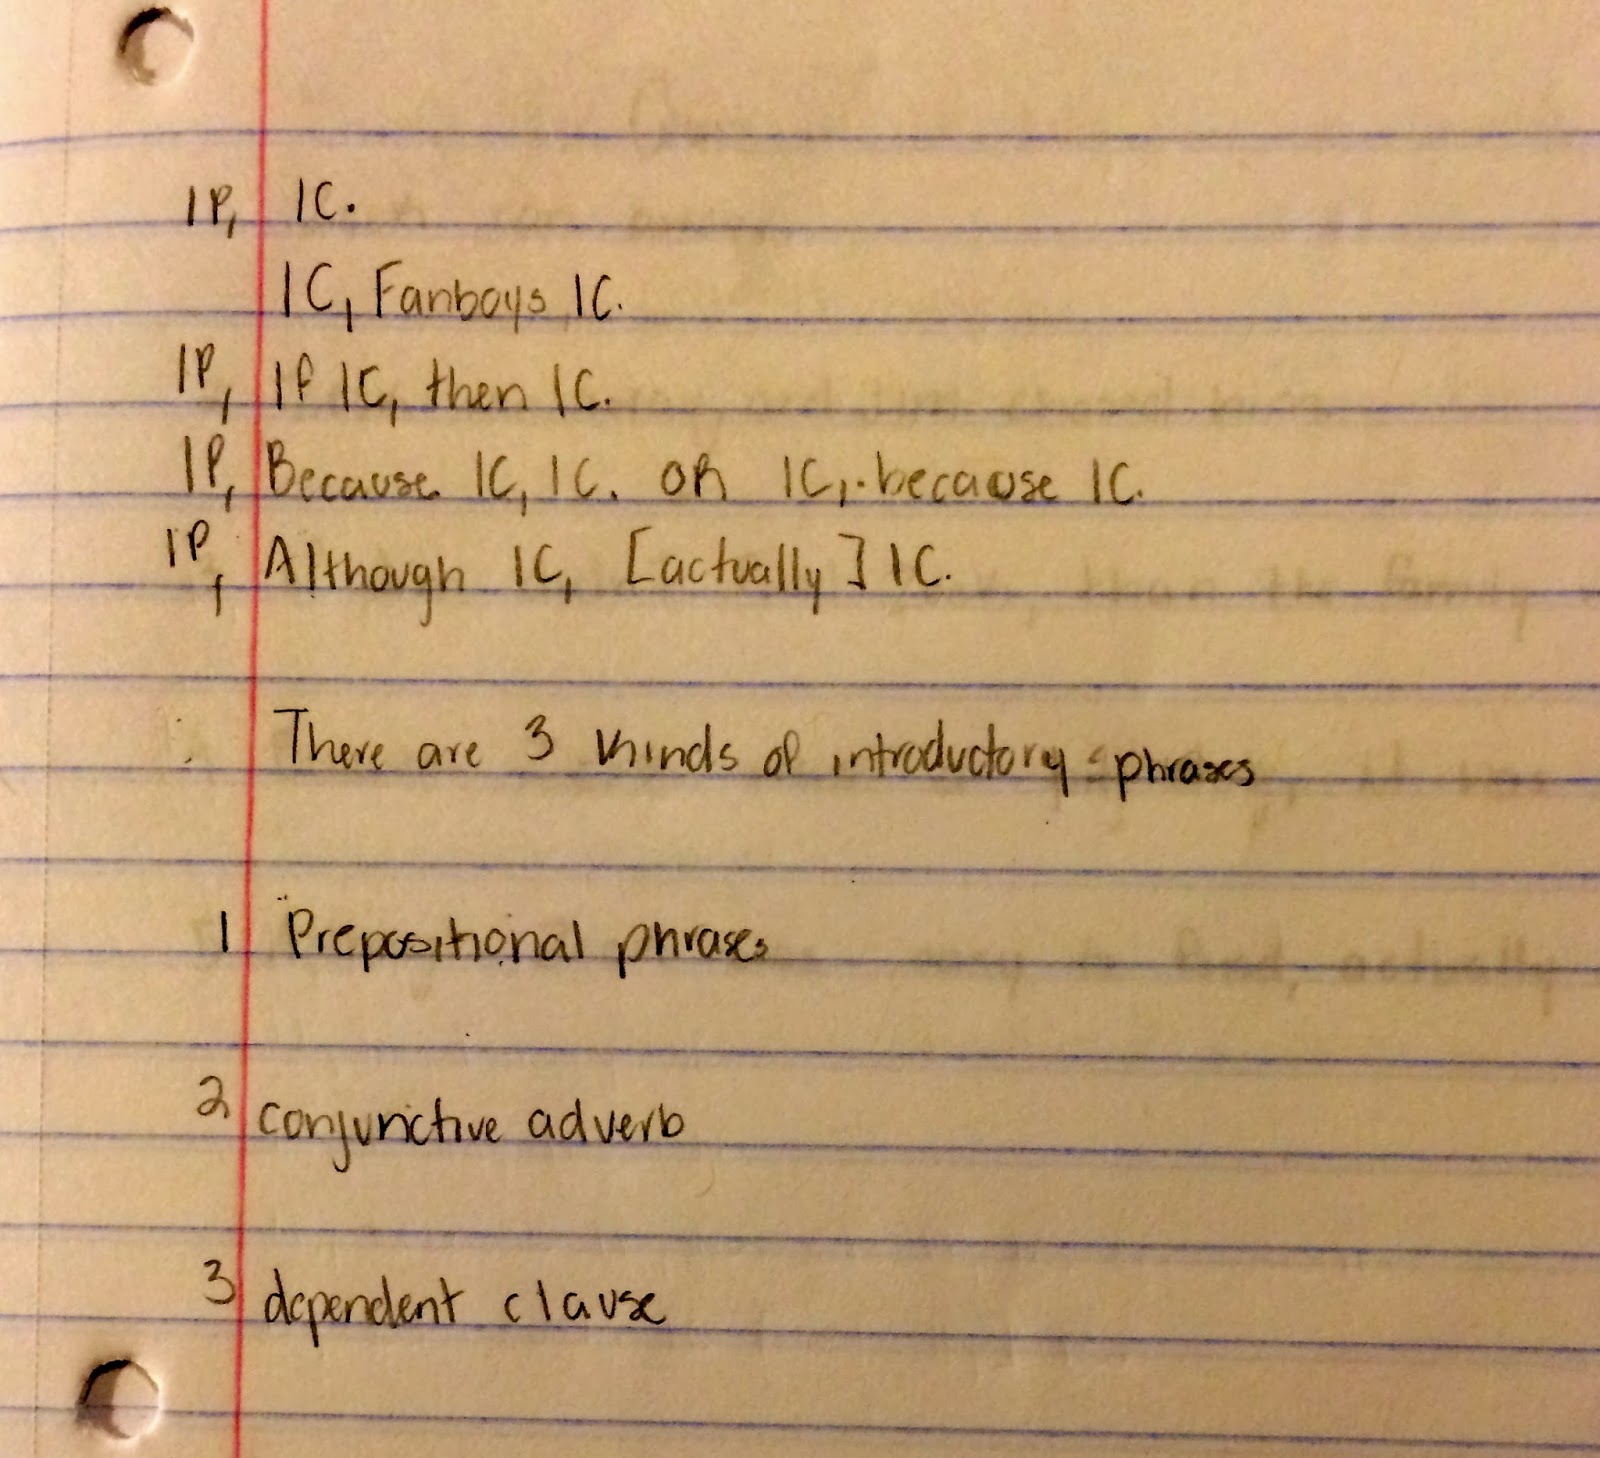 IP, IC.
IC, Fanboys IC.
IP, If IC, then IC.
IP, Because IC, IC. OR IC, because IC.
IP, Although IC, [actually] IC.
There are 3 kinds of introductory phrases
1 Prepositional phrases
2 conjunctive adverb
3 dependent clause